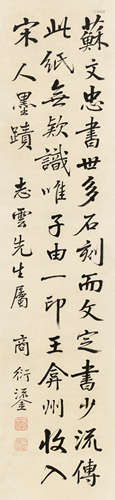 蘇文忠書世多石刻而文定書少流傳
此紙無欵識唯子由一印王弇州收入
宋人墨蹟 志雲先生屬 商衍鎏